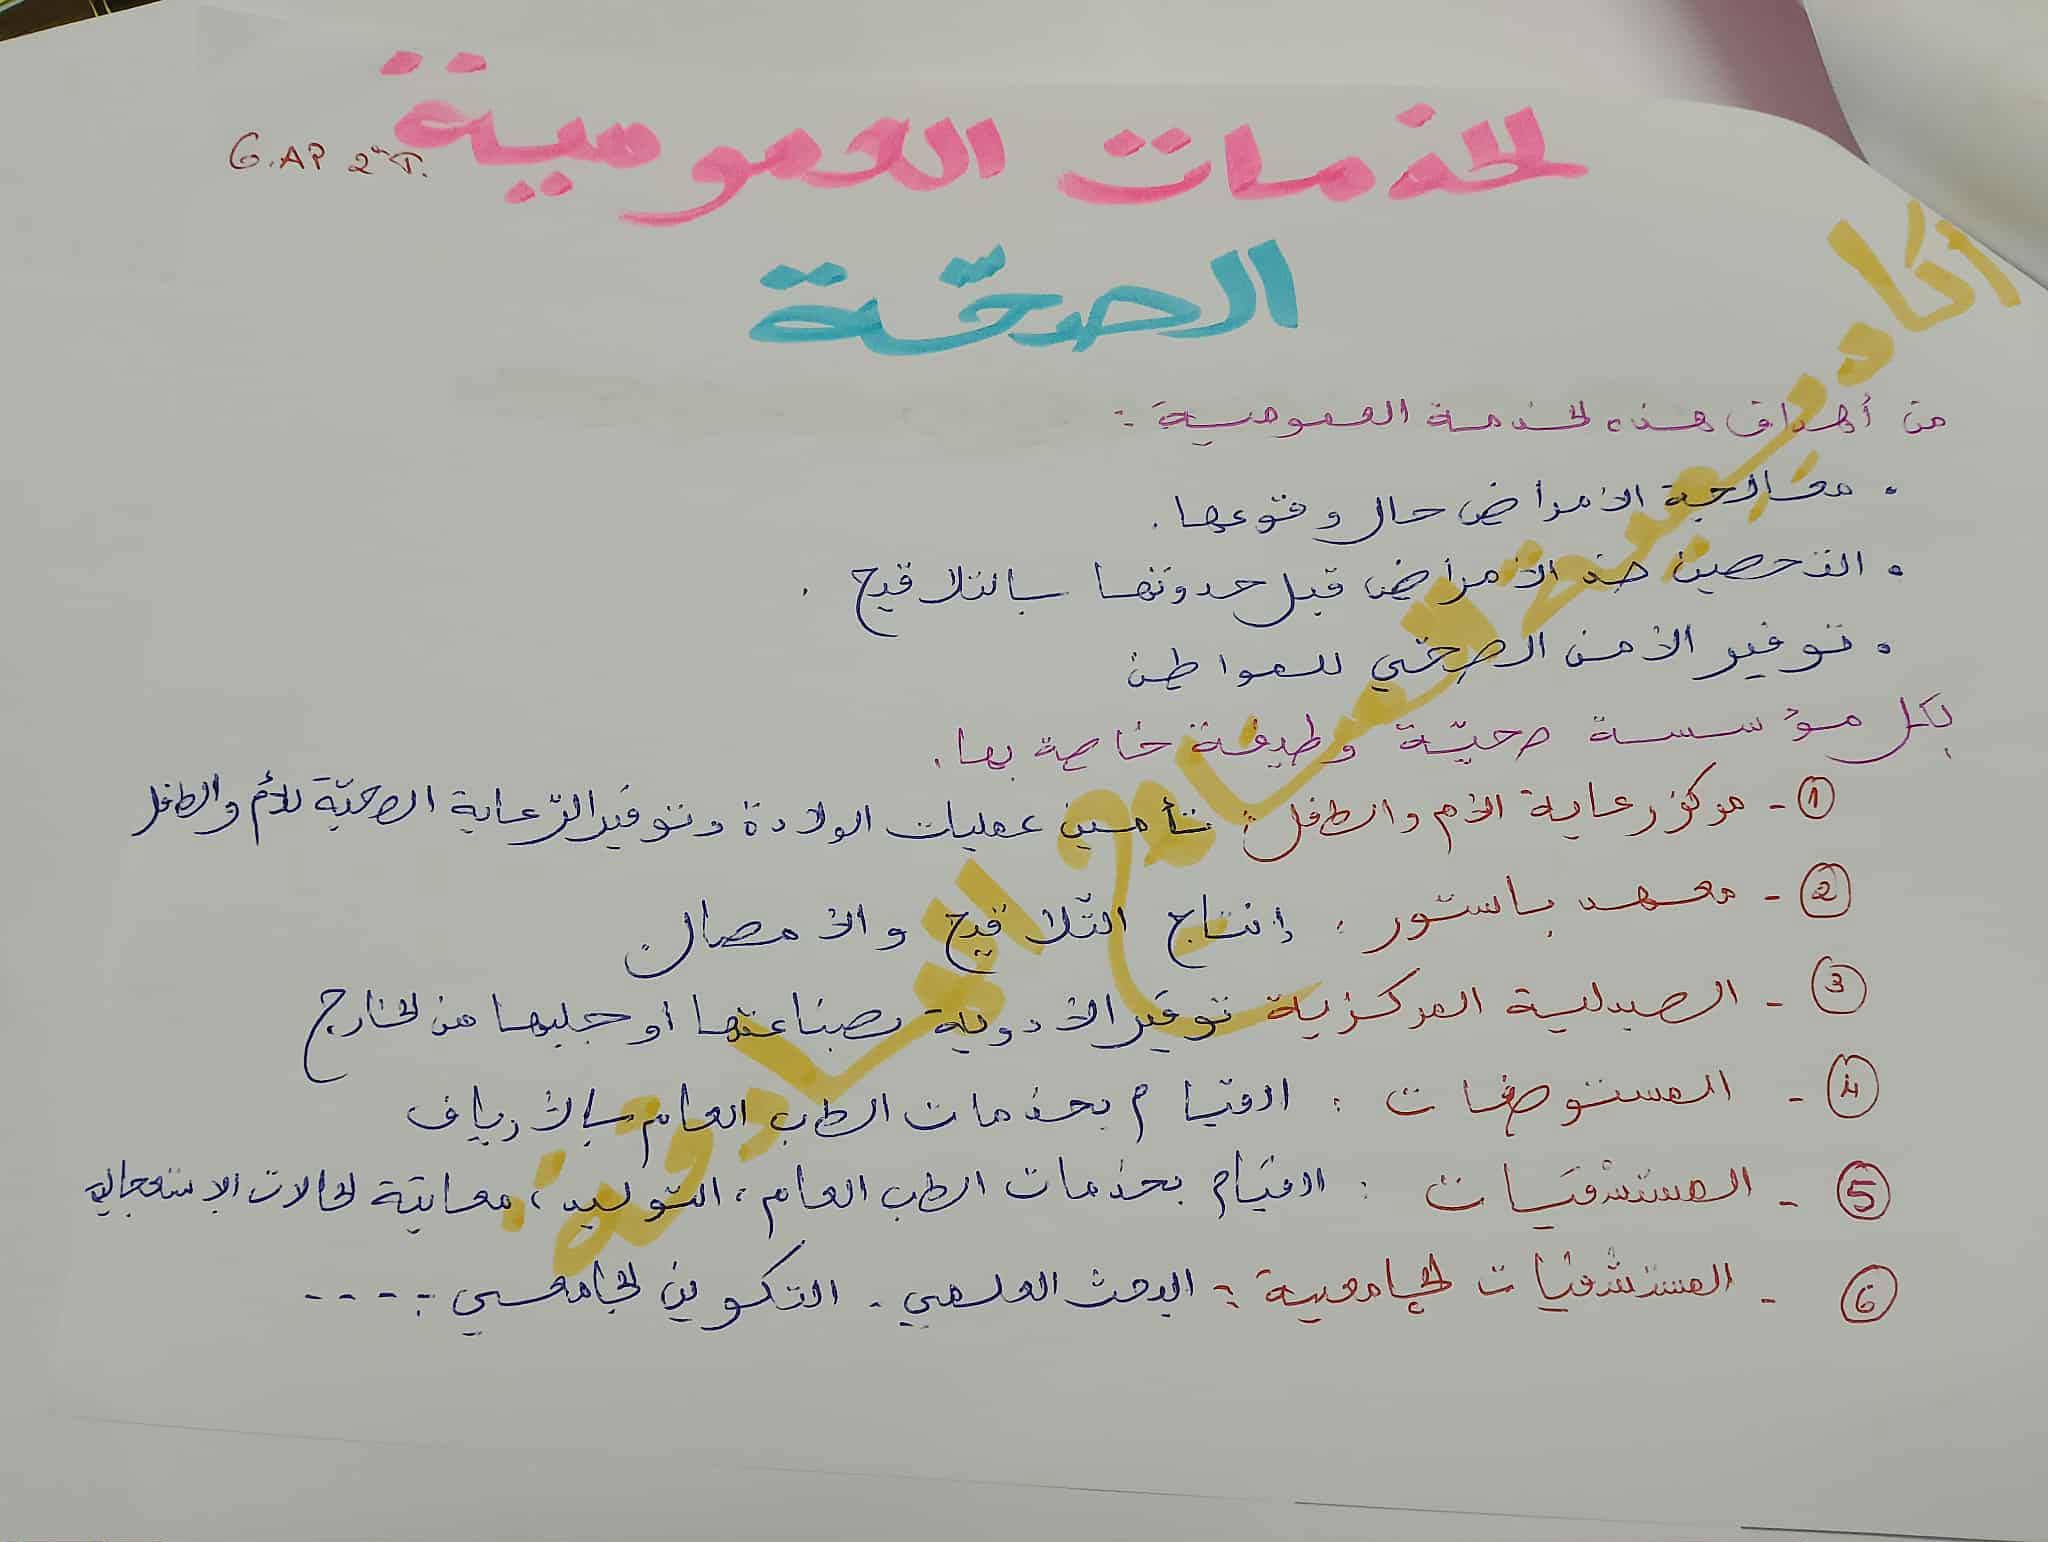 الخدمات العمومية
6.AP 2ème T.
الصحّة
من أهداف هذه الخدمة العمومية :
• معالجة الأمراض حال وقوعها.
• التحصين ضد الأمراض قبل حدوثها بالتلاقيح .
• توفير الأمن الصحّي للمواطن
لكل مؤسسة صحيّة وظيفة خاصة بها.
1 - مركز رعاية الأم والطفل : تأمين عمليات الولادة وتوفير الرّعاية الصحيّة للأم والطفل
2 - معهد باستور : إنتاج التّلاقيح والأمصال.
3 - الصيدلية المركزية توفير الأدوية بصناعتها او جلبها من الخارج
4 - المستوصفات : القيام بخدمات الطب العام بالأرياف
5 - المستشفيات : القيام بخدمات الطب العام، التوليد، معاينة الحالات الإستعجالية
6 - المستشفيات الجامعية : البحث العلمي - التكوين الجامعي - - - -
أكاديمية النجاح الهادفة